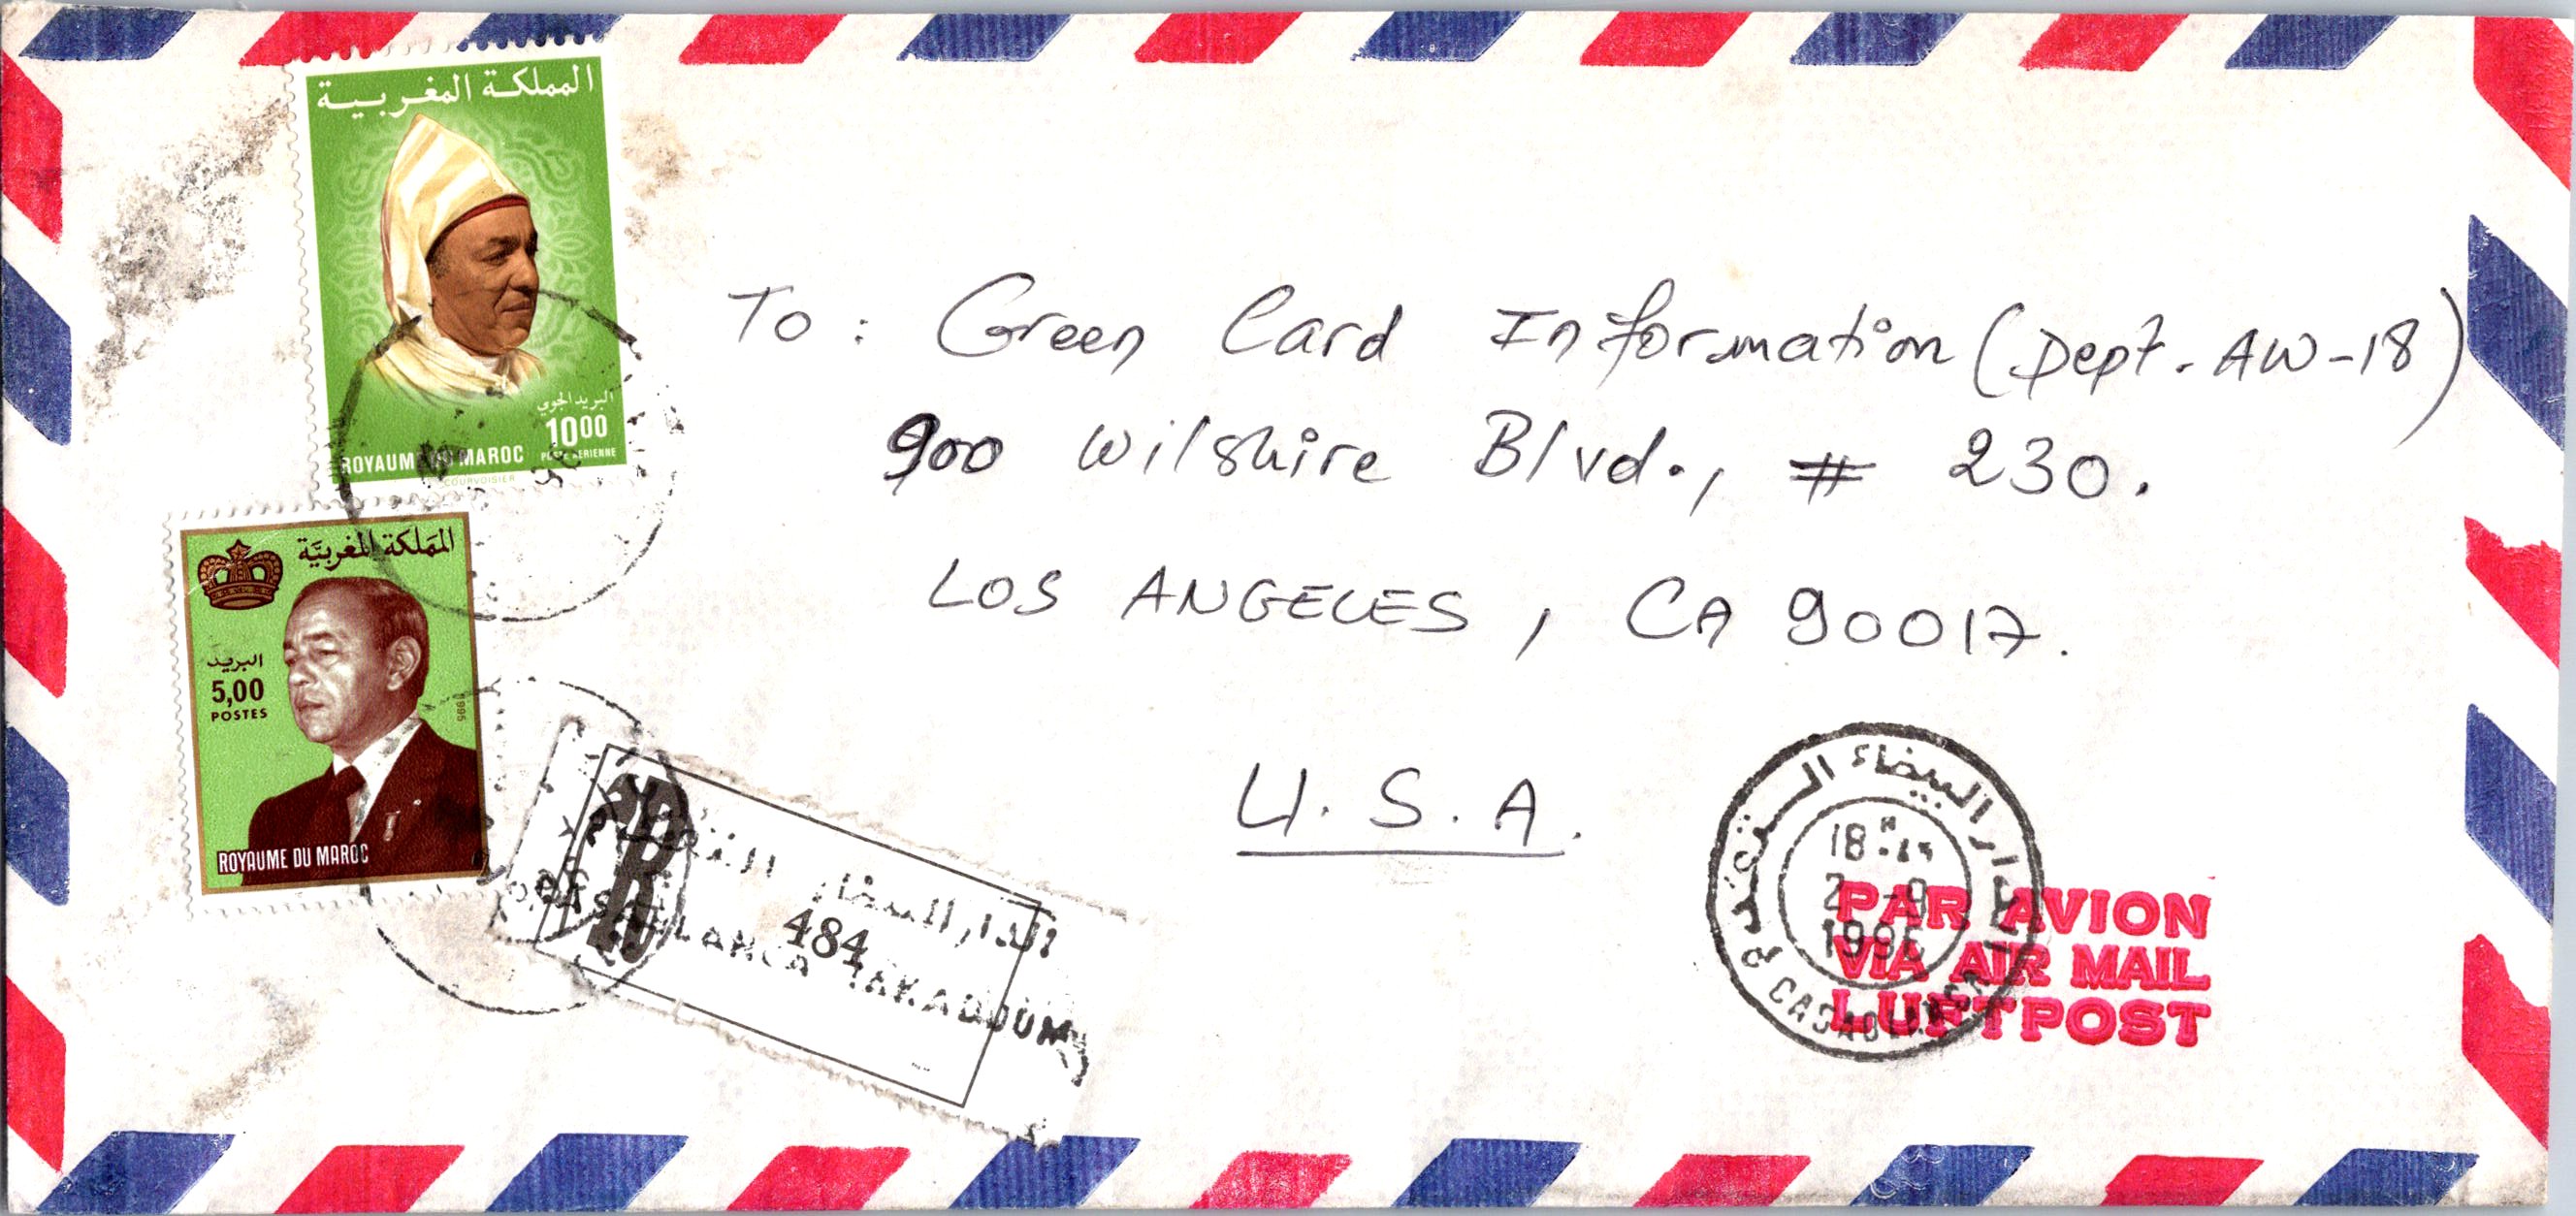 المملكة المغربية
البريد الجوي
1000
ROYAUME DU MAROC
POSTE AERIENNE
COURVOISIER
المملكة المغربية
البريد
5,00
POSTES
1995
ROYAUME DU MAROC
To : Green Card Information (Dept. AW-18)
900 Wilshire Blvd., # 230.
LOS ANGELES, CA 90017.
U.S.A.
R
الدار البيضاء
484
CASABLANCA YAKADOUM
الدار البيضاء
18
2 -9
1996
CASABLANCA
PAR AVION
VIA AIR MAIL
LUFTPOST